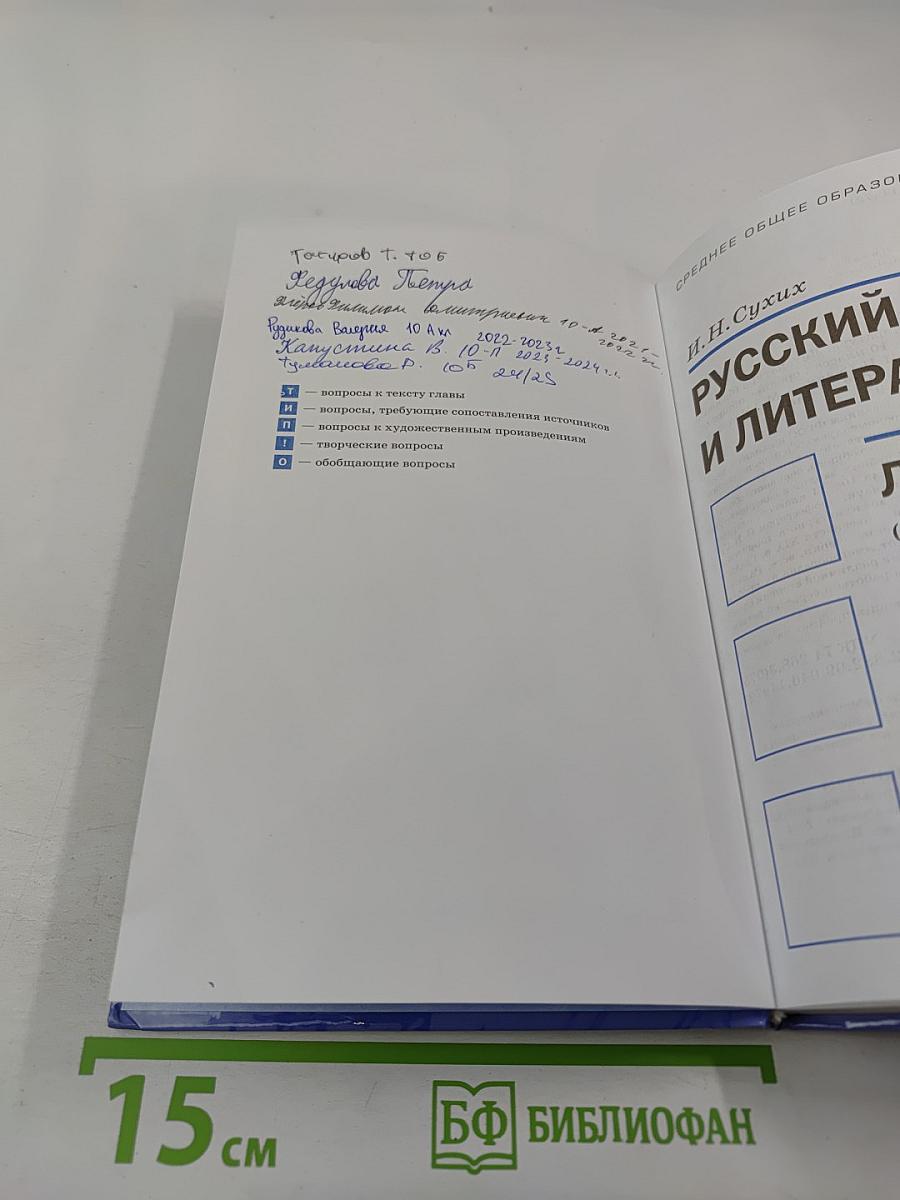 Т. 10Б
Федулова Петра
Дмитриевич 10-А 2021-2022 г.
Рудикова Валерия 10 А кл 2022-2023 г
Капустина В. 10-П 2023-2024 г.
Туманова Р. 10Б 24/25
Т — вопросы к тексту главы
И — вопросы, требующие сопоставления источников
П — вопросы к художественным произведениям
! — творческие вопросы
О — обобщающие вопросы
СРЕДНЕЕ ОБЩЕЕ
И. Н. Сухих
РУССКИЙ
И
15 см
БФ БИБЛИОФАН